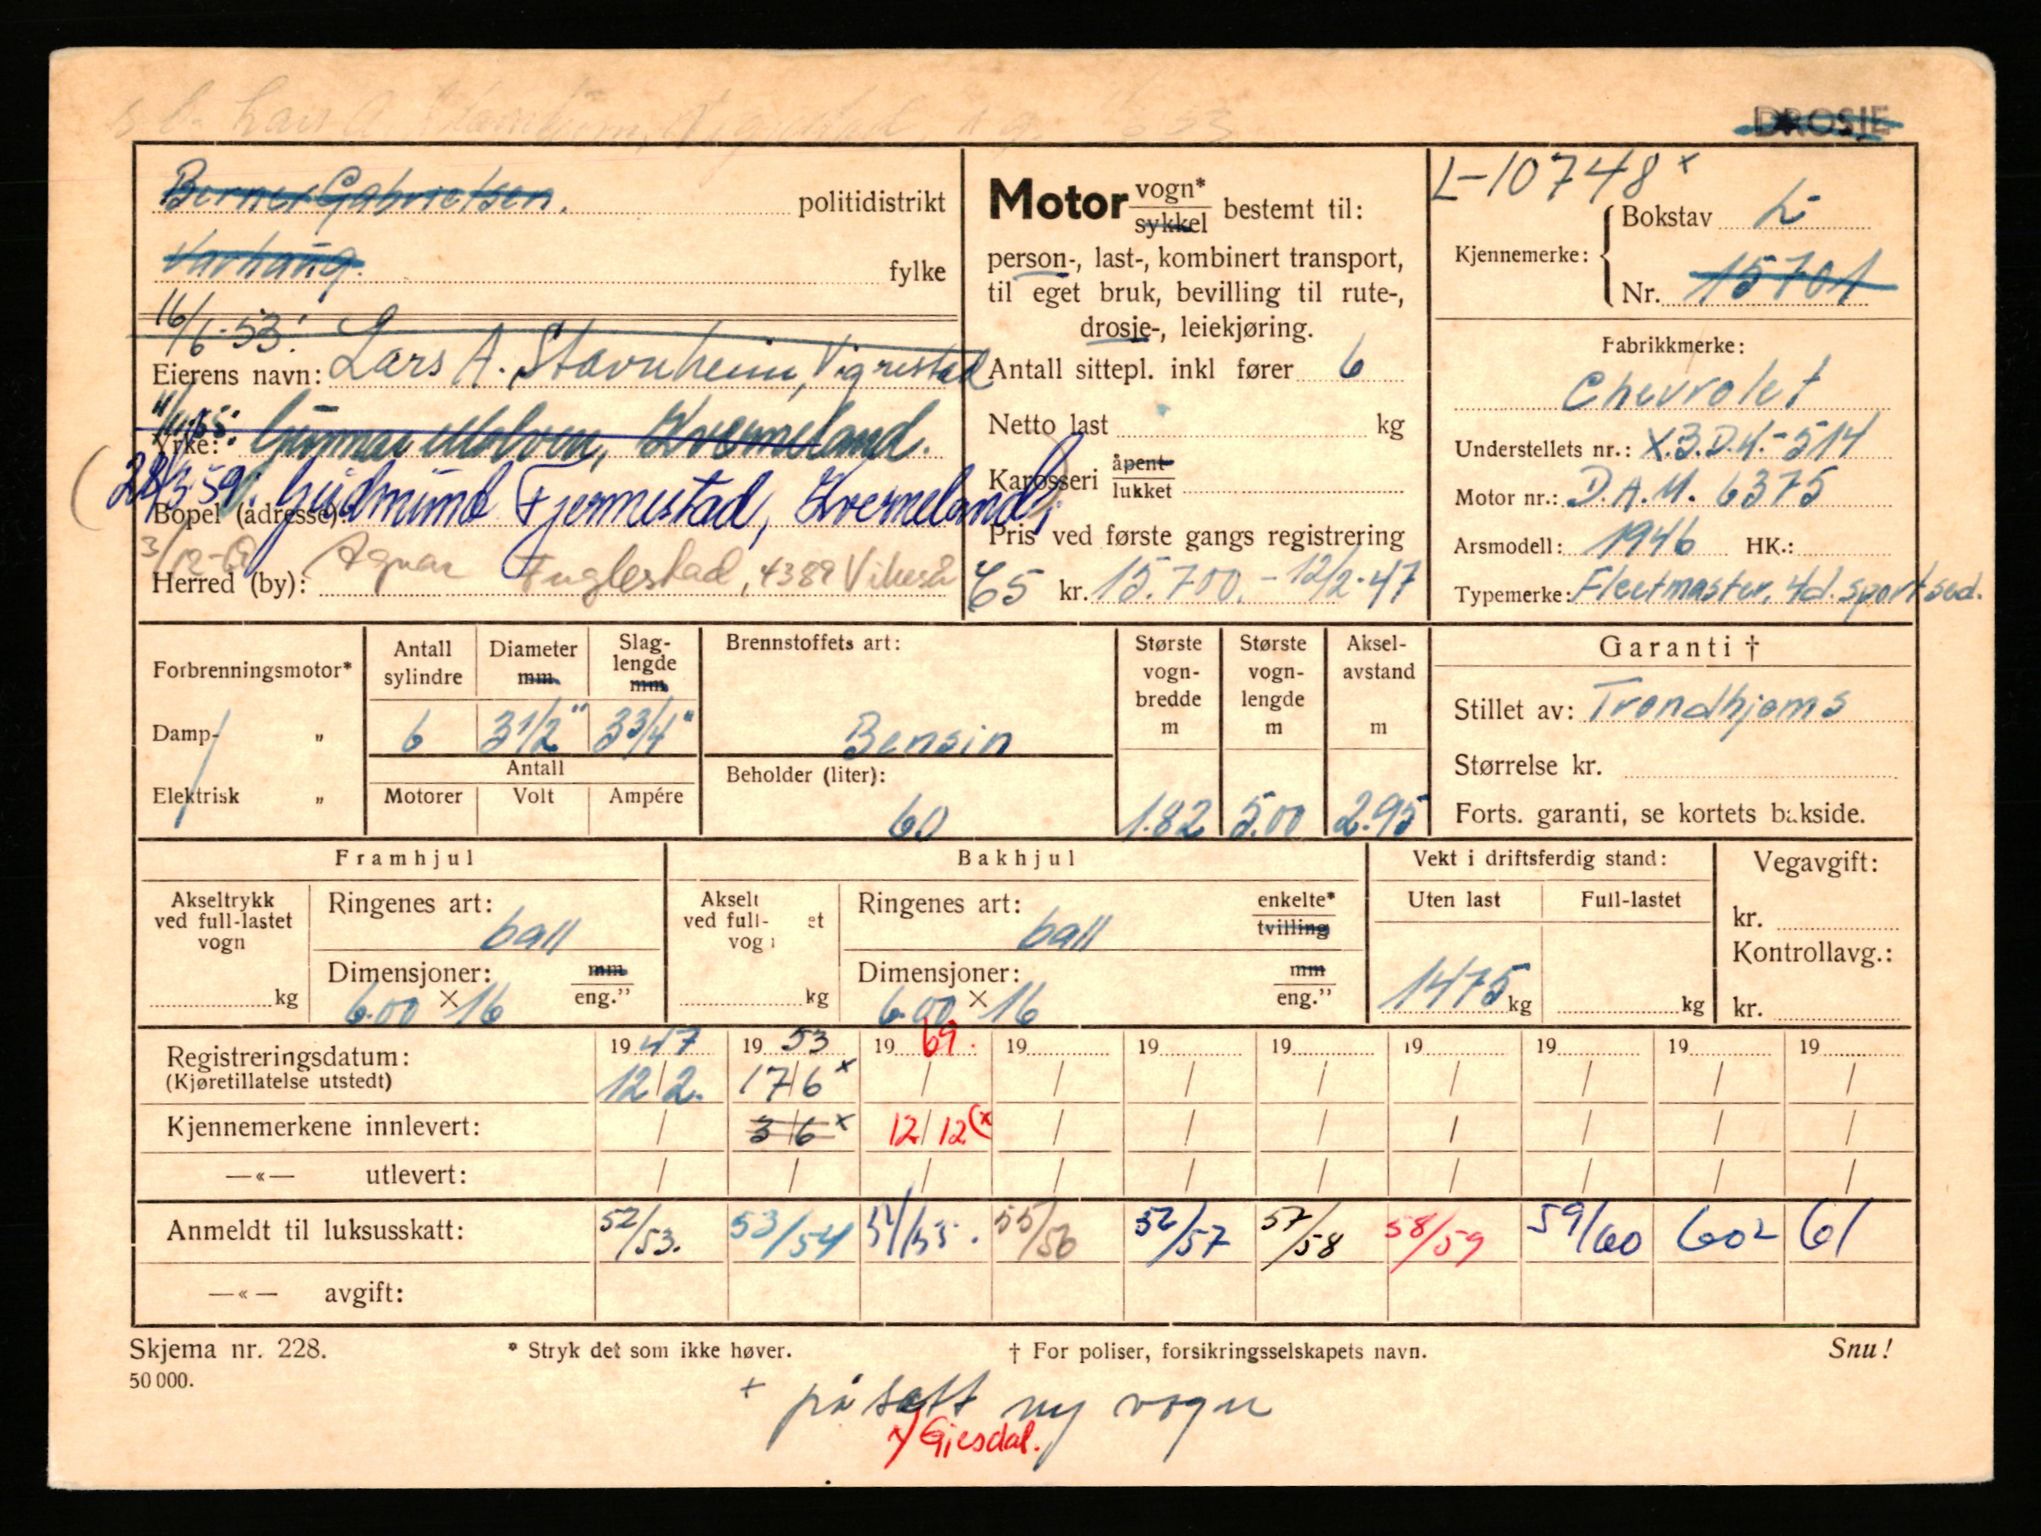 Lars A. Stavnheim, Vigrestad
DROSJE
Berner Gabrielsen. politidistrikt
Varhaug. fylke
16/6-53:
Eierens navn: Lars A. Stavnheim, Vigrestad
Yrke: Gunnar Molven, Kverneland.
28/3-59: Gudmund Fjermestad, Kverneland
Bopel (adresse):
3/12-69 Agnar Fuglestad, 4389 Vikeså
Herred (by):
Motor vogn* sykkel bestemt til:
person-, last-, kombinert transport,
til eget bruk, bevilling til rute-,
drosje-, leiekjøring.
Antall sittepl. inkl fører 6
Netto last kg
Karosseri åpent lukket
Pris ved første gangs registrering
65 kr. 15.700.- 12/2-47
L-10748 x
Kjennemerke: Bokstav L-
Nr. 15701
Fabrikkmerke:
Chevrolet
Understellets nr.: X.3.D.4.-514
Motor nr.: D.A.M. 6375
Arsmodell: 1946 HK.:
Typemerke: Fleetmaster, 4d. sport sed.
Forbrenningsmotor*
Damp- „
Elektrisk „
Antall sylindre
6
Diameter mm.
3 1/2"
Slag-lengde mm.
3 3/4"
Antall
Motorer Volt Ampére
Brennstoffets art:
Bensin
Beholder (liter):
60
Største vogn-bredde m
1.82
Største vogn-lengde m
5.00
Aksel-avstand m
2.95
Garanti †
Stillet av: Trondhjems
Størrelse kr.
Forts. garanti, se kortets bakside.
Framhjul
Akseltrykk ved full-lastet vogn
kg
Ringenes art:
ball
Dimensjoner: mm eng.”
6.00 × 16
Bakhjul
Akselt ved full- et vog
kg
Ringenes art: enkelte* tvilling
ball
Dimensjoner: mm eng.”
6.00 × 16
Vekt i driftsferdig stand:
Uten last Full-lastet
1475 kg kg
Vegavgift:
kr.
Kontrollavg.:
kr.
Registreringsdatum: 19 47 19 53 19 69. 19 19 19 19 19 19 19
(Kjøretillatelse utstedt) 12/2. 17/6 x / / / / / / / /
Kjennemerkene innlevert: / 3/6 x 12/12 (x / / / / / / /
—«— utlevert: / / / / / / / / / /
Anmeldt til luksusskatt: 52/53. 53/54 54/55. 55/56 56/57 57/58 58/59 59/60 602 61
—«— avgift:
Skjema nr. 228. * Stryk det som ikke høver. † For poliser, forsikringsselskapets navn. Snu!
50 000.
+ påsatt ny vogn
x/ Gjesdal.